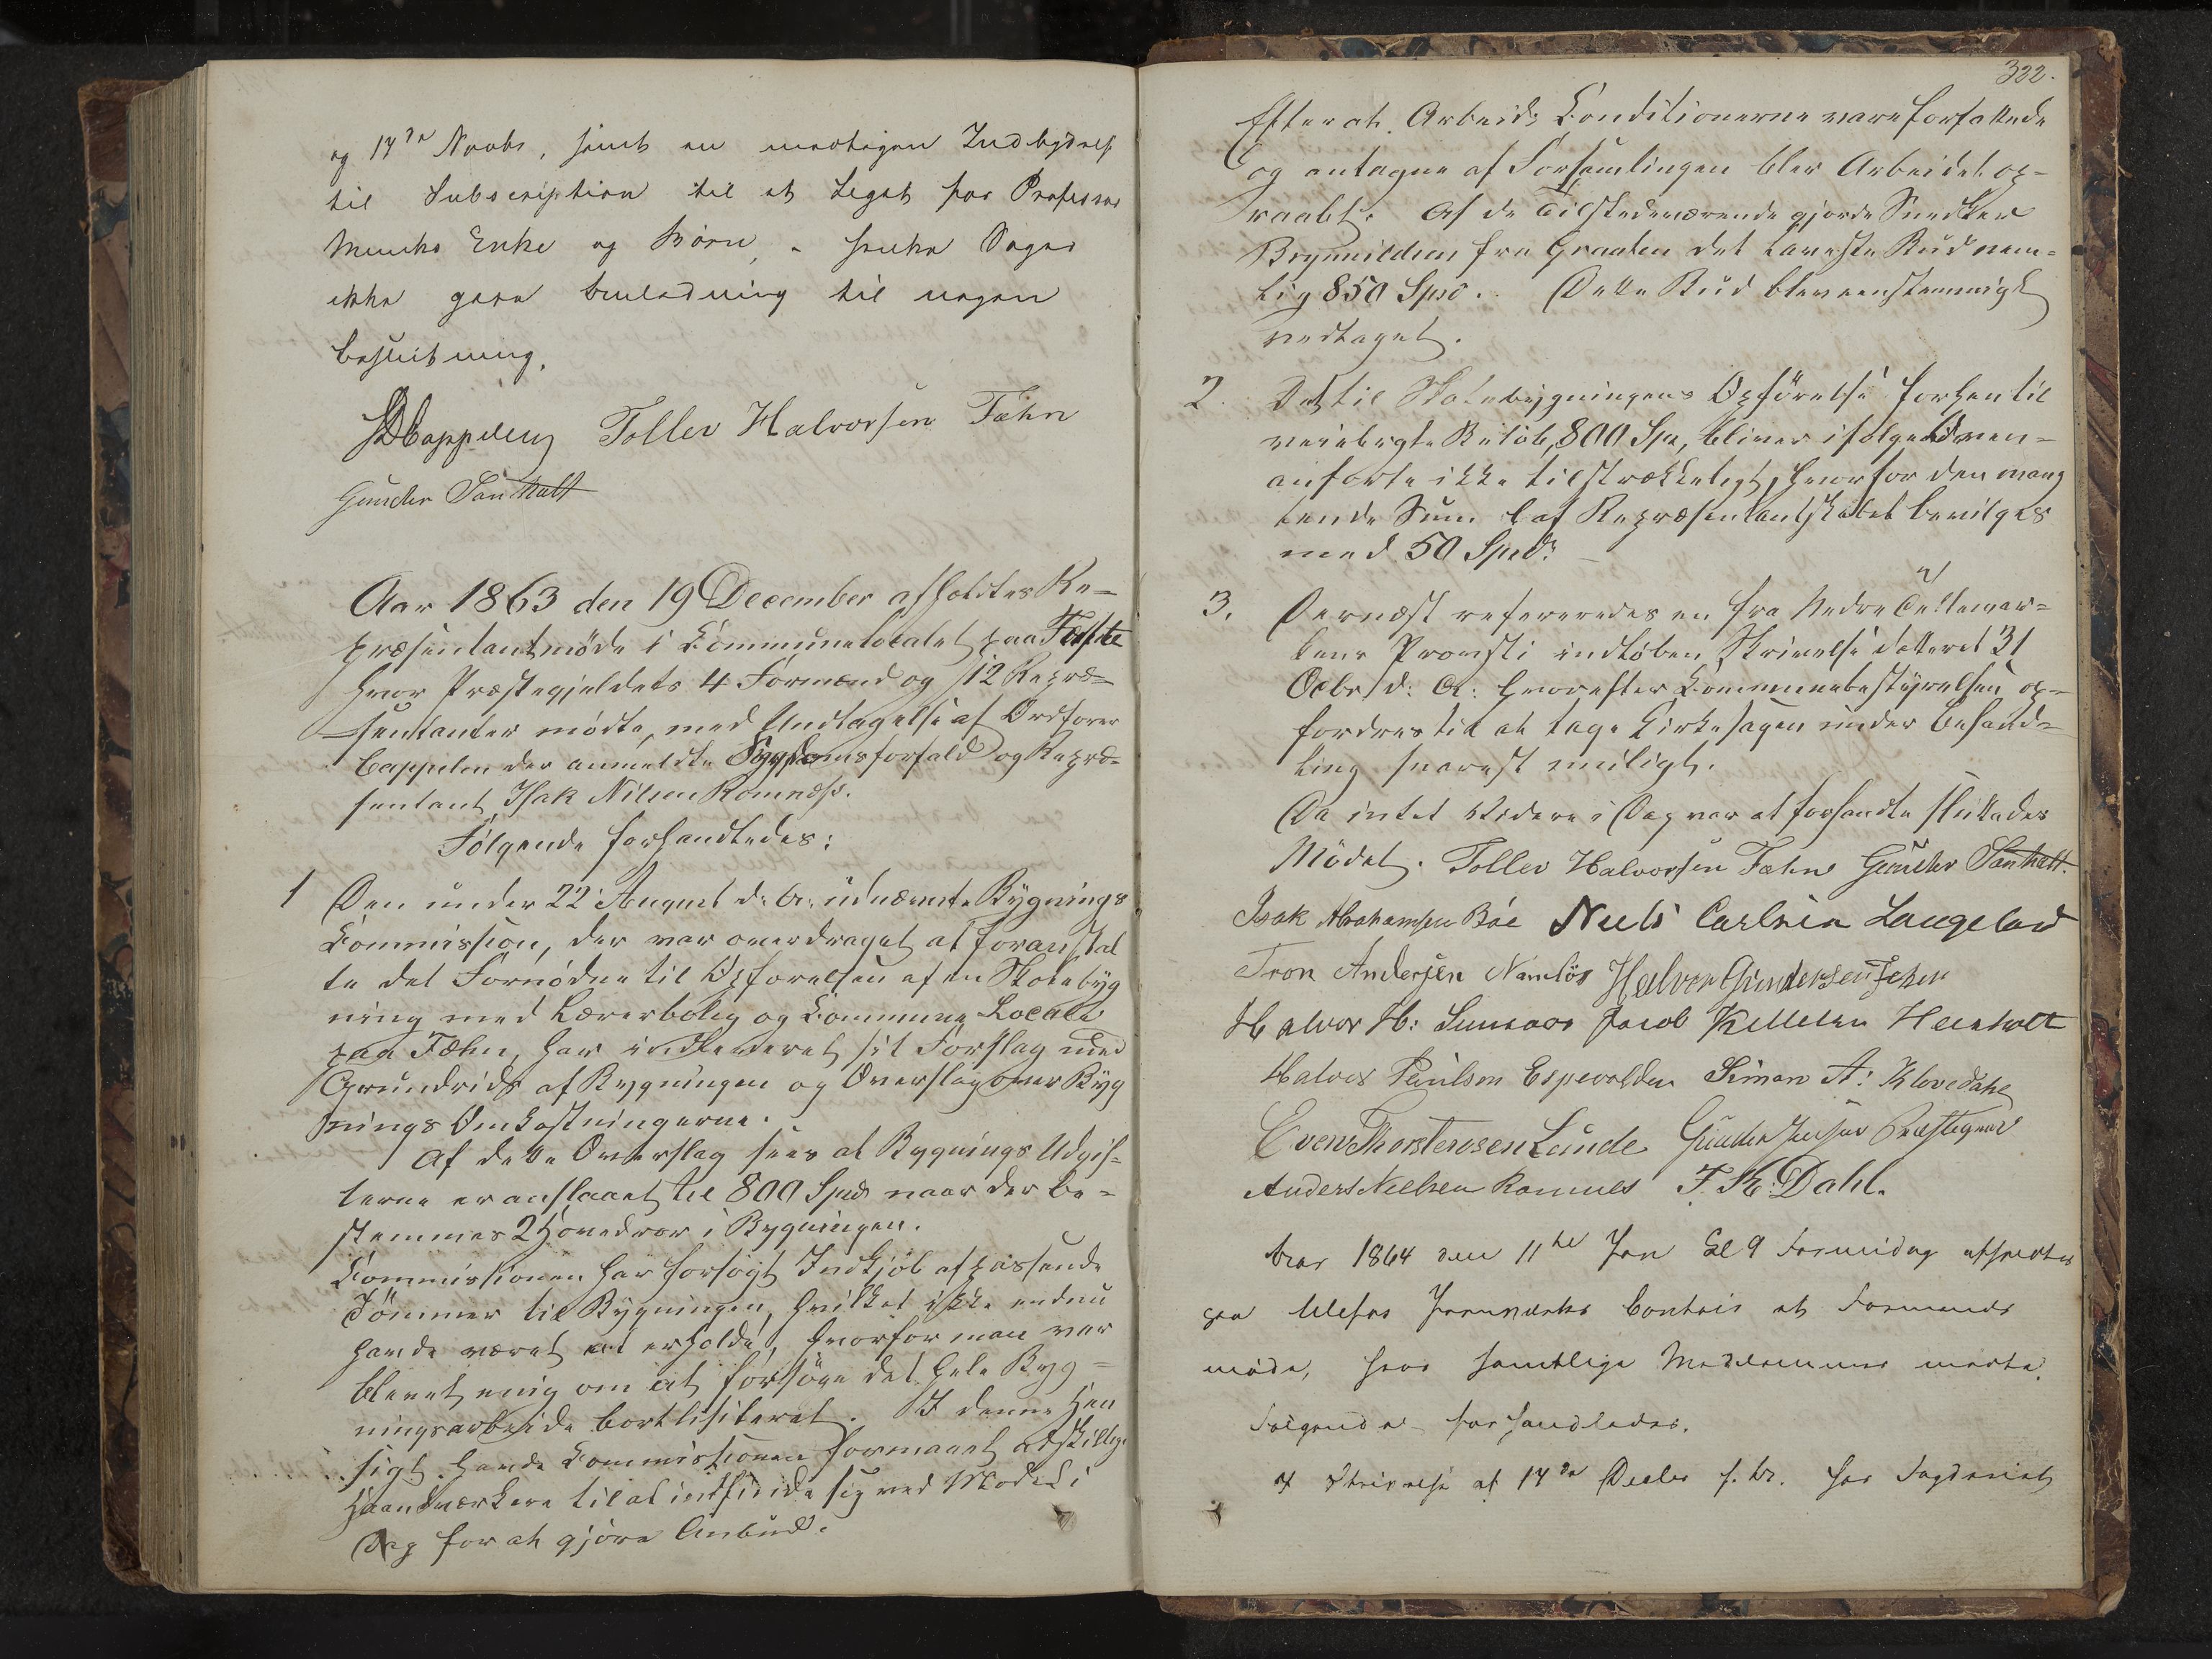 og 17de Novbr, samt en modtagen Indbydelse
til Subscription til et Legat for Professor
Munchs Enke og Børn, – hvilke Sager
ikke gave Anledning til nogen
Beslutning.
DCappelen Tollev Halvorsen Fæhn
Gunder Sankalt
Aar 1863 den 19 December afholdtes Re-
præsentantmøde i Kommunelocalet paa
hvor Præstegjeldets 4 Formænd og 12 Repræ-
sentanter mødte, med Undtagelse af Ordfører
Cappelen der anmeldte Sygdomsforfald og Repræ-
sentant Isak Nilsen Romnæss.
Følgende forhandledes:
1 Den under 22 August d. A. udnævnte Bygnings
Commission, der var overdraget at foranstal
te det Fornødne til Opførelsen af en Skolebyg
ning med Lærerbolig og Kommune Locale
paa Fæhn, har indleveret sit Forslag med
Grundrids af Bygningen og Overslag over Byg
nings Omkostningerne.
Af dette Overslag sees at Bygnings Udgif-
terne er anslaaet til 800 Spd naar der be-
stemmes 2 Hovedrør i Bygningen.
Commissionen har forsøgt Indkjøb af passende
Tømmer til Bygningen, hvilket ikke endnu
havde været at erholde, hvorfor man var
blevet enig om at forsøge det hele Byg-
ningsarbeide bortlisiteret. I denne Hen
sigt havde Commissionen formaaet adskillige
Haandværkere til at indfinde sig ved Mødet i
Dag for at gjøre Anbud.
322.
Efter at Arbeids Conditionerne vare forfattede
og antagne af Forsamlingen blev Arbeidet op-
raabt. Af de Tilstedeværende gjorde Snedker
Brynnildsen fra Graaten det laveste Bud nem-
lig 850 Spd. Dette Bud blev eenstemmigt
vedtaget.
2. Det til Skolebygningens Opførelse forhen til
veiebragte Beløb, 800 Spd, bliver ifølge Oven-
anførte ikke tilstrækkeligt, hvorfor den mang
lende Sum af Repræsentantskabet bevilges
med 50 Spd. –
3. Dernæst refereredes en fra Nedre Tellemar-
kens Provsti indløben Skrivelse dateret 31
Octbr d. A. hvorefter Kommunebestyrelsen op-
fordres til at tage Kirkesagen under Behand-
ling snarest muligt.
Da intet Videre i Dag var at forhandle sluttedes
Mødet. Tollev Halvorsen Fæhn Gunder Sankalt.
Isak Abrahamsen Bøe Niels Carlsen Langeland
Tron Andersen Namløs Halvor Gundersen Fehn
Halvor H: Sunsaas Jacob Kittelsen Heisholt
Halvor Paulsen Espevolden Simon A: Klovedahl
Even Thorstensen Lunde Gunder Jensen Præstegaard
Anders Nielsen Romnes F. K. Dahl.
Aar 1864 den 11te Jan Kl 9 Formidag afholdtes
paa Ulefos Jernværks Contoir et Formands
møde, hvor samtlige Medlemmer mødte.
Følgende forhandledes.
I Skrivelse af 14de Decbr f. Aar har Fogderiet